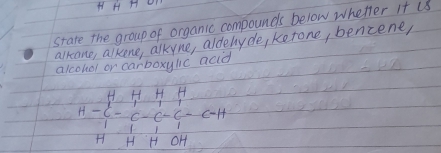 H H H OH
State the group of organic compounds below whether it is
alkane, alkene, alkyne, aldehyde, ketone, benzene,
alcohol or carboxylic acid
H H H H
H - C - C - C - C - C-H
H H H OH